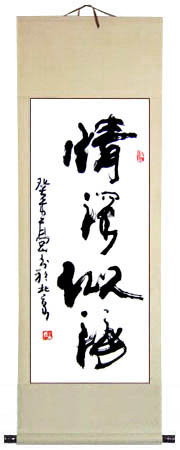 情深似海
癸 书於北京